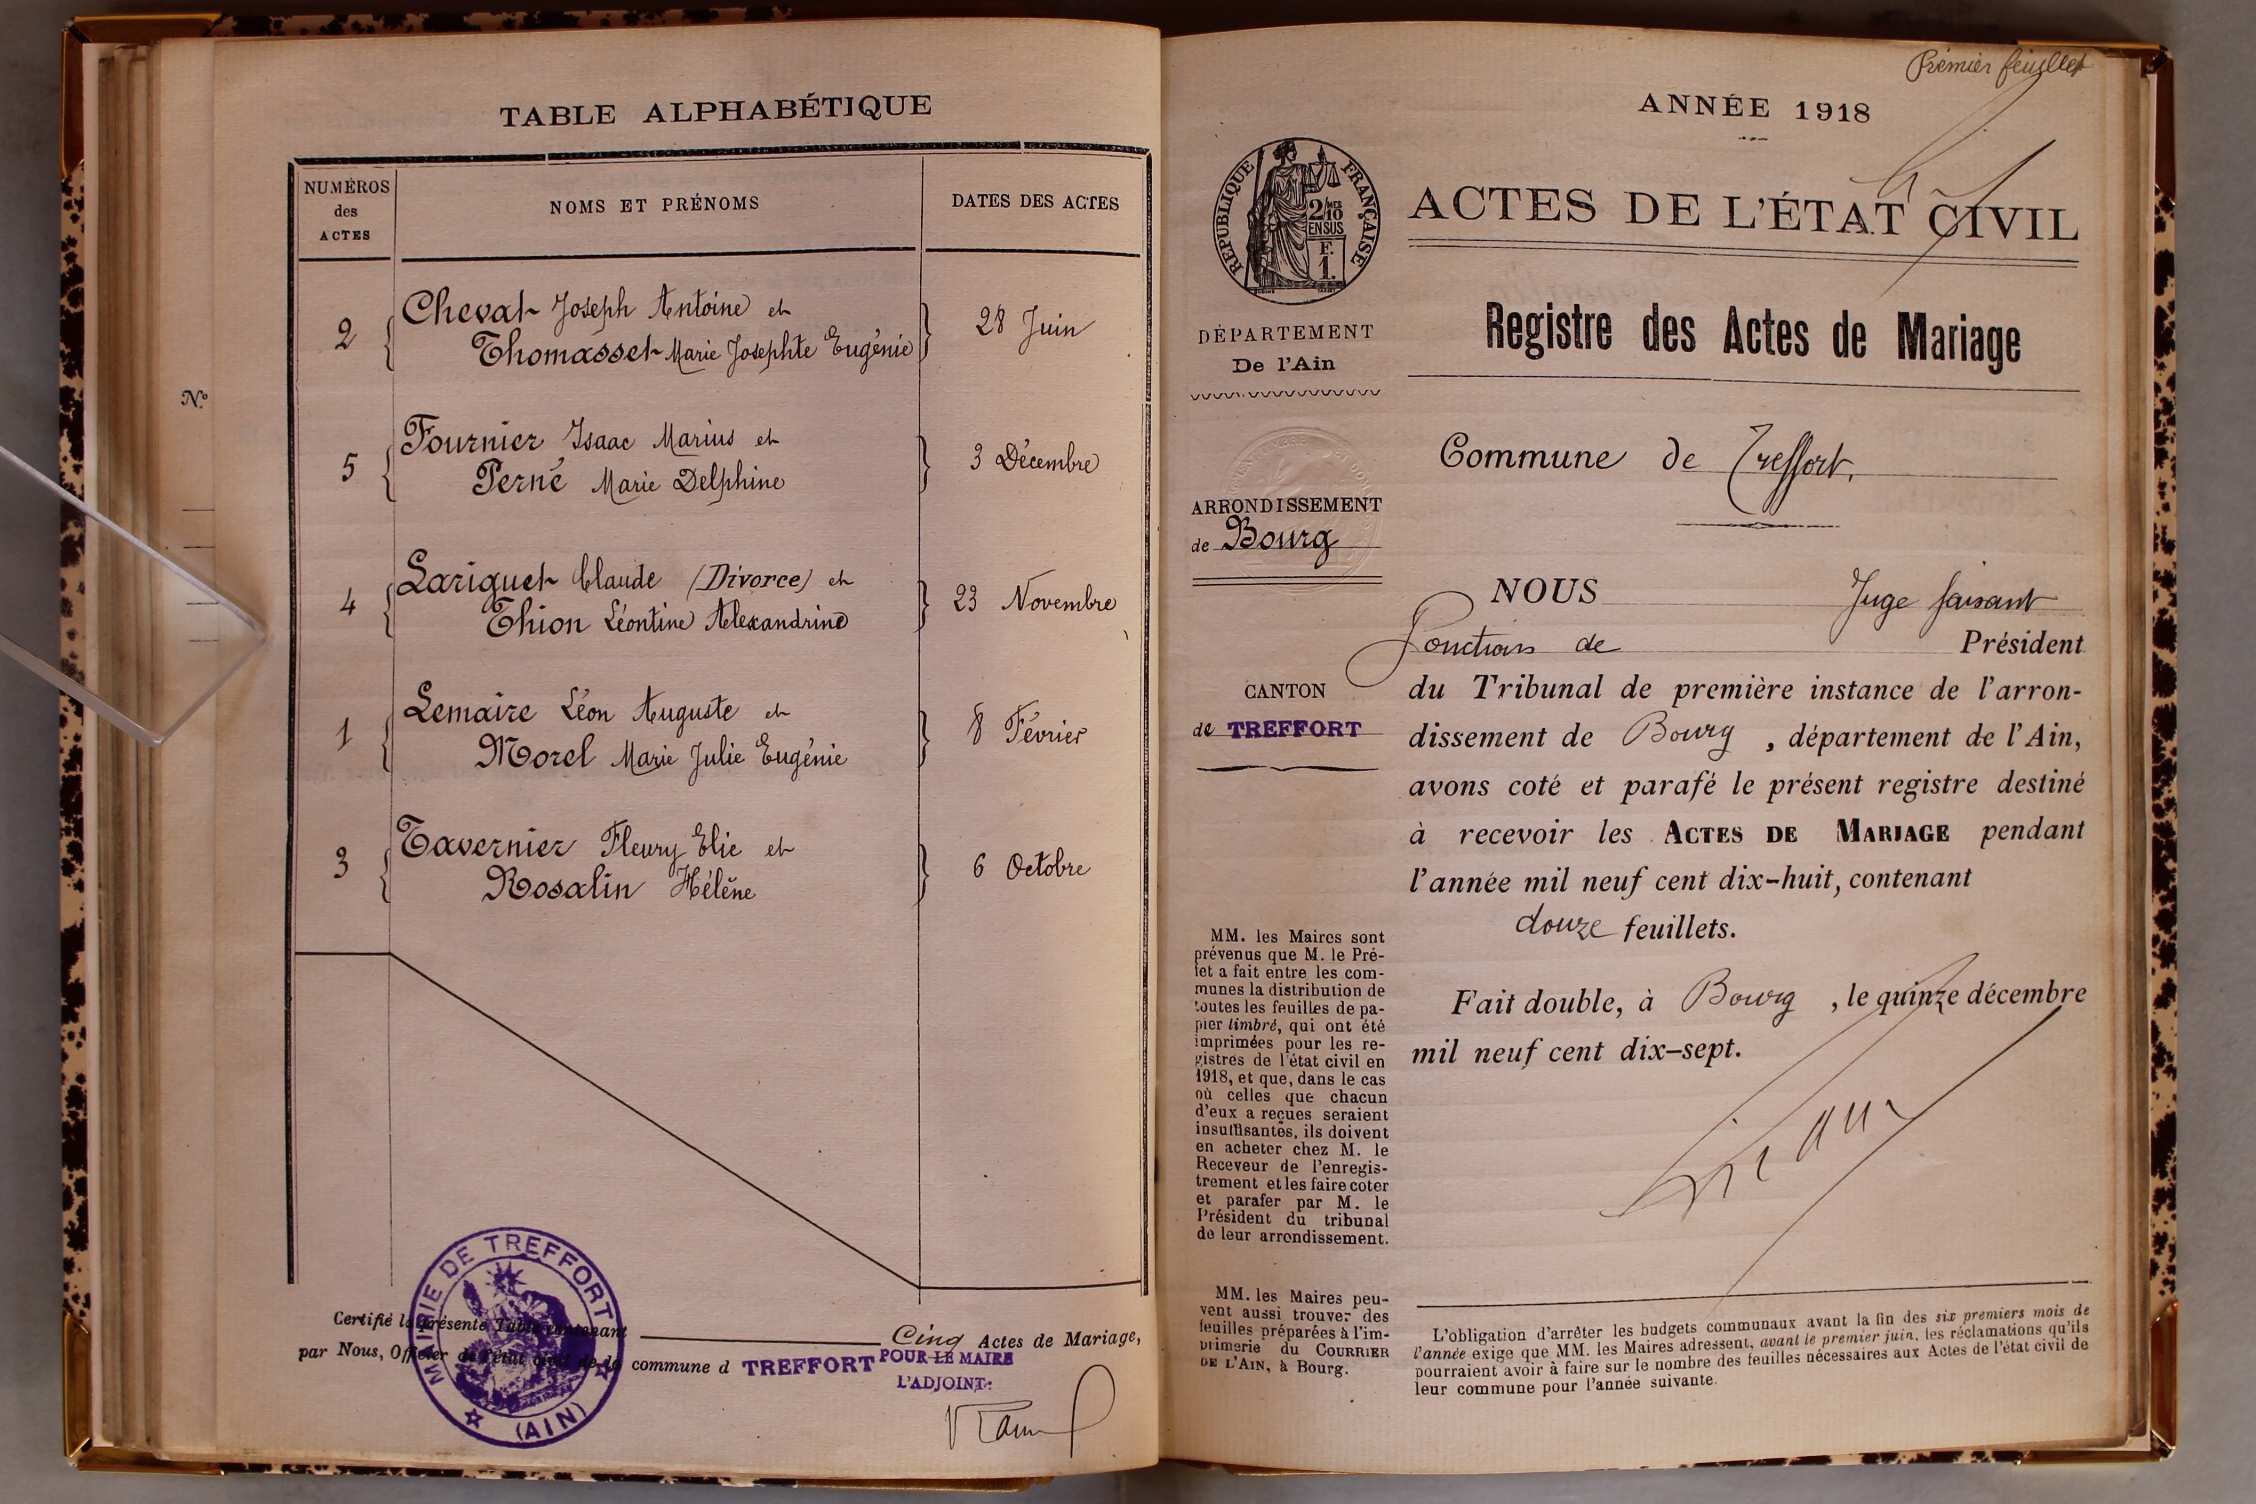 N.º
TABLE ALPHABÉTIQUE
NUMÉROS
des
ACTES
NOMS ET PRÉNOMS
DATES DES ACTES
2
Chevat Joseph Antoine et
Thomasset Marie Josephte Eugénie
28 Juin
5
Fournier Isaac Marius et
Perné Marie Delphine
3 Décembre
4
Lariguet Claude (Divorce) et
Thion Léontine Alexandrine
23 Novembre
1
Lemaire Léon Auguste et
Morel Marie Julie Eugénie
8 Février
3
Tavernier Fleury Elie et
Rosalin Hélène
6 Octobre
Certifié la présente Table contenant Cinq Actes de Mariage,
par Nous, Officier de l'état civil de la commune d TREFFORT
POUR LE MAIRE
L'ADJOINT:
MAIRIE DE TREFFORT
(AIN)
Premier feuillet
ANNÉE 1918
RÉPUBLIQUE FRANÇAISE
2/10MES
EN SUS
F.
1.
ACTES DE L'ÉTAT CIVIL
Registre des Actes de Mariage
DÉPARTEMENT
De l'Ain
Commune de Treffort.
ARRONDISSEMENT
de Bourg
CANTON
de TREFFORT
NOUS Juge faisant
fonctions de Président
du Tribunal de première instance de l'arron-
dissement de Bourg, département de l'Ain,
avons coté et parafé le présent registre destiné
à recevoir les ACTES DE MARIAGE pendant
l'année mil neuf cent dix-huit, contenant
douze feuillets.
Fait double, à Bourg, le quinze décembre
mil neuf cent dix-sept.
MM. les Maires sont
prévenus que M. le Pré-
fet a fait entre les com-
munes la distribution de
toutes les feuilles de pa-
pier timbré, qui ont été
imprimées pour les re-
gistres de l'état civil en
1918, et que, dans le cas
où celles que chacun
d'eux a reçues seraient
insuffisantes, ils doivent
en acheter chez M. le
Receveur de l'enregis-
trement et les faire coter
et parafer par M. le
Président du tribunal
de leur arrondissement.
MM. les Maires peu-
vent aussi trouver des
feuilles préparées à l'im-
primerie du COURRIER
DE L'AIN, à Bourg.
L'obligation d'arrêter les budgets communaux avant la fin des six premiers mois de
l'année exige que MM. les Maires adressent, avant le premier juin, les réclamations qu'ils
pourraient avoir à faire sur le nombre des feuilles nécessaires aux Actes de l'état civil de
leur commune pour l'année suivante.